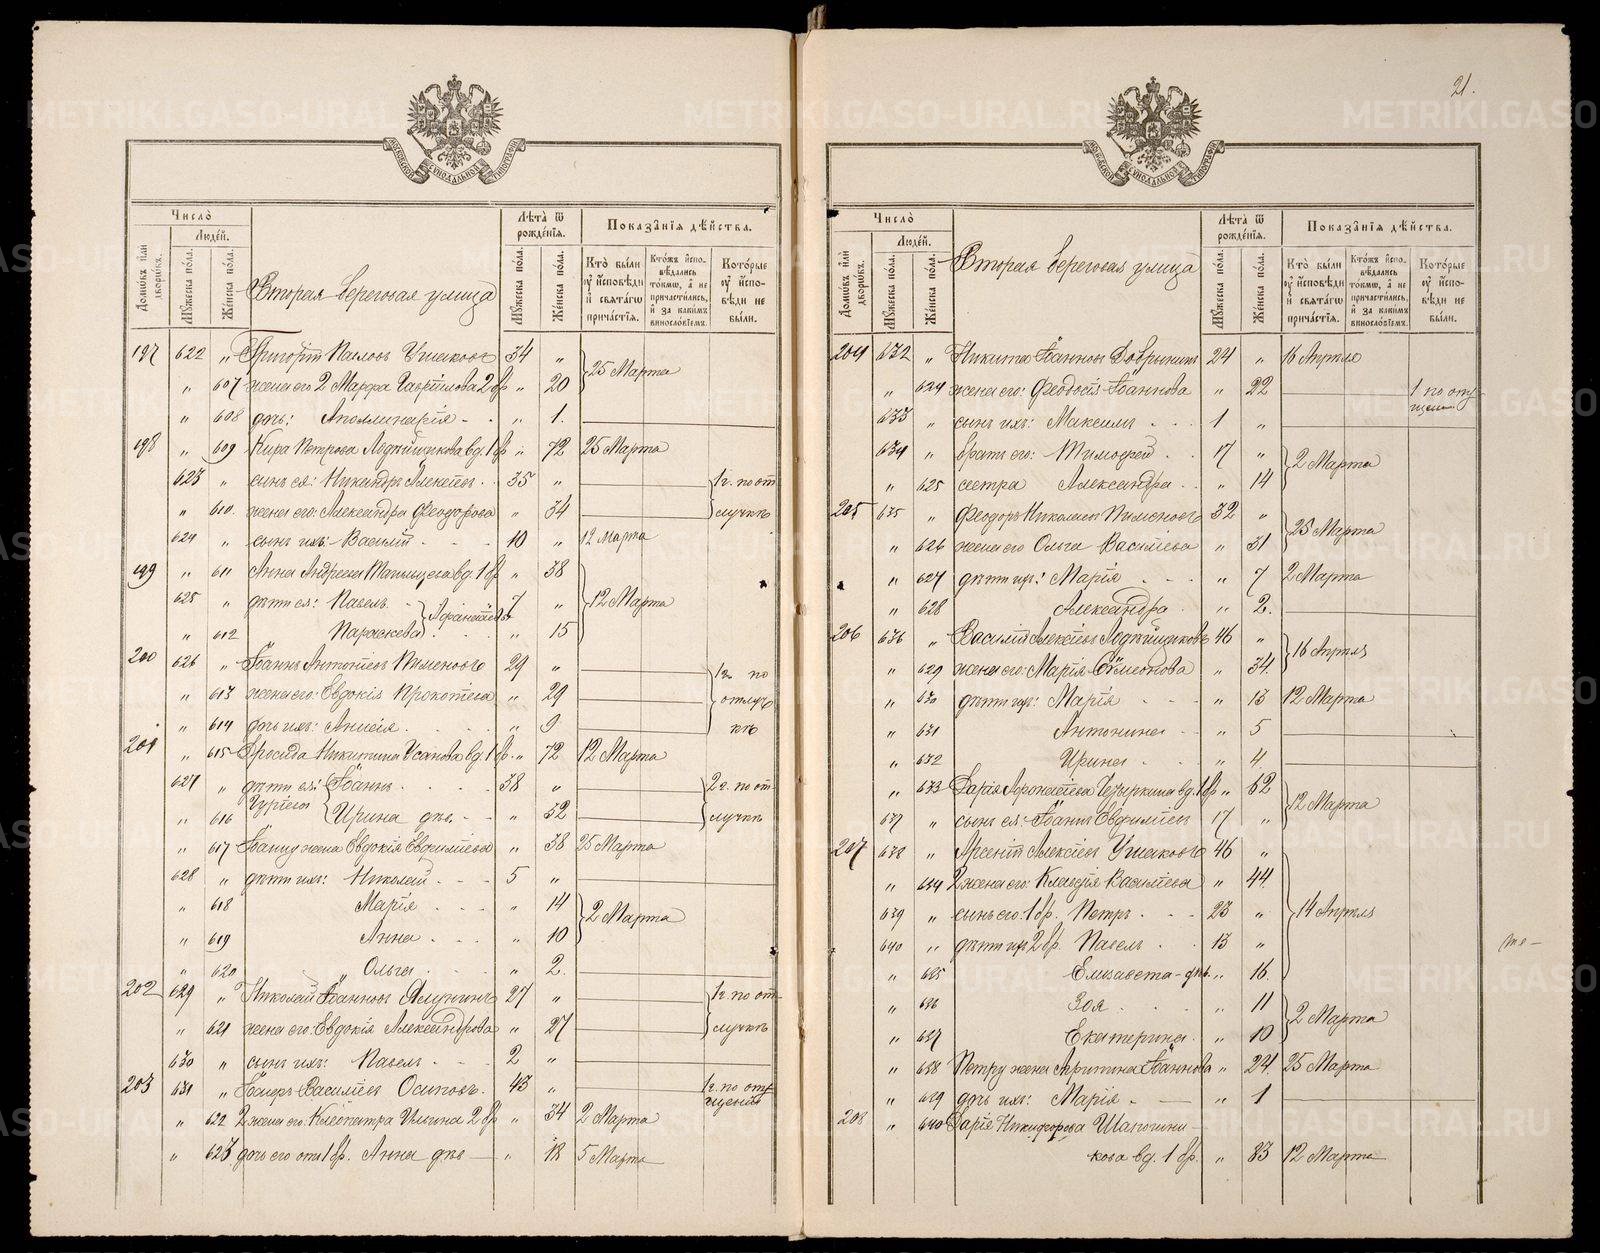 21.
МОСКОВСКОЙ СУНОДАЛЬНОЙ ТИПОГРАФІИ
Число̀
Людéй.
Домѡвъ и҆лѝ дворѡ́въ.
Мꙋ́жеска по́ла.
Же́нска по́ла.
Вторая береговая улица
Лѣта̀ ѿ рожде́нїѧ.
Мꙋ́жеска по́ла.
Же́нска по́ла.
Показа̑нїѧ дѣ́йства.
Кто̀ бы́ли оу҆ и҆сповѣ́ди и҆ свѧта́гѡ прича́стїѧ.
Кто́жъ и҆спо-вѣ́дались то́кмѡ, а҆ не причасти́лись, и҆ за каки́мъ винослов́їемъ.
Кото́рые оу҆ и҆спо-вѣ́ди не бы́ли.
197 622 „ Григорій Павловъ Ушаковъ 34 „
25 Марта
„ 607 жена его 2 Марфа Гавріилова 2 бр „ 20
„ 608 дчь: Аполлинарія - - „ 1.
198 „ 609 Кира Петрова Лоджищикова вд. 1 бр „ 72 25 Марта
623 „ сынъ ея: Никандръ Алексѣевъ . . 35 „
1 г. по от
лучкѣ
„ 610. жена его: Александра Феодорова „ 34
624 „ сынъ ихъ: Василій . - - 10 „ 12 Марта
199 „ 611 Анна Андреева вд. 1 бр „ 38
625 „ дѣти ея: Павелъ - 7 „
12 Марта
„ 612 Параскева . - - „ 15
200 626 „ Іоаннъ Антоніевъ Пименовъ 29 „
1 г. по
отлуч
кѣ
„ 613 жена его: Евдокія Прокопіева „ 29
„ 614 дчь ихъ: Анисія . . . . „ 9
201 „ 615 Никитина Усанова вд. 1 бр. „ 72 12 Марта
627 „ дѣти ея: Іоаннъ . . . . 38 „
2 г. по от
лучкѣ
„ 616 Ирина двц. - - „ 32
„ 617 Іоанну жена Евдокія Евфиміева „ 38 25 Марта
628 „ дѣти ихъ: Николай . - - 5 „
„ 618 Марія . - - - „ 14
2 Марта
„ 619 Анна . - - - „ 10
„ 620 Ольга . - - - „ 2.
202 629 „ Николай Іоанновъ Алунинъ 27 „
1 г. по от-
лучкѣ
„ 621 жена его: Евдокія Александрова „ 27
630 „ сынъ ихъ: Павелъ . - - 2 „
203 631 „ Васильевъ Осиповъ . 43 „
1 г. по отъ
„ 622 2 жена его: Клеопатра Ильина 2 бр „ 34 2 Марта
„ 623 дчь его отъ 1 бр. Анна двц — „ 18 5 Марта
МОСКОВСКОЙ СУНОДАЛЬНОЙ ТИПОГРАФІИ
Число̀
Людéй.
Домѡвъ и҆лѝ дворѡ́въ.
Мꙋ́жеска по́ла.
Же́нска по́ла.
Вторая береговая улица
Лѣта̀ ѿ рожде́нїѧ.
Мꙋ́жеска по́ла.
Же́нска по́ла.
Показа̑нїѧ дѣ́йства.
Кто̀ бы́ли оу҆ и҆сповѣ́ди и҆ свѧта́гѡ прича́стїѧ.
Кто́жъ и҆спо-вѣ́дались то́кмѡ, а҆ не причасти́лись, и҆ за каки́мъ винослов́їемъ.
Кото́рые оу҆ и҆спо-вѣ́ди не бы́ли.
204 632 „ Никита Іоанновъ Добрынинъ 24 „ 16 Апрѣля
„ 624 жена его: Феодосія Іоаннова „ 22
1 по опу
щенію
633 „ сынъ ихъ: Максимъ . . . 1 „
634 „ братъ его: Тимофей . . 17 „
2 Марта
„ 625 сестра Александра . . „ 14
205 635 „ Феодоръ Николаевъ Пименовъ 32 „
25 Марта
„ 626 жена его Ольга Васильева „ 31
„ 627 дѣти ихъ: Марія . - - „ 7 2 Марта
„ 628 Александра . „ 2.
206 636 „ Василій Алексѣевъ Лоджищиковъ 46 „
16 Апрѣля
„ 629 жена его: Марія Симеонова „ 34.
„ 630 дѣти ихъ: Марія . - - „ 13 12 Марта
„ 631 Антонина - - „ 5
„ 632 Ирина - - „ 4.
„ 633 Дарія Афонасіева вд. 1 бр „ 62
12 Марта
637 „ сынъ ея: Іоаннъ Евфиміевъ 17 „
207 638 „ Арсеній Алексѣевъ Ушаковъ 46 „
„ 634 2 жена его: Клавдія Васильева „ 44.
14 Апрѣля
639 „ сынъ его: 1 бр. Петръ . - - 23 „
640 „ дѣти ихъ 2 бр. Павелъ . . 13 „
„ 635 Елизавета - двц. „ 16.
„ 636 Зоя . . . „ 11
2 Марта
„ 637 Екатерина . „ 10
„ 638 Петру жена Агрипина Іоаннова „ 24. 25 Марта
„ 639 дчь ихъ: Марія . — „ 1
208 „ 640 Дарія Никифорова Шапошни-
кова вд. 1 бр. „ 83 12 Марта
METRIKI.GASO-URAL.RU